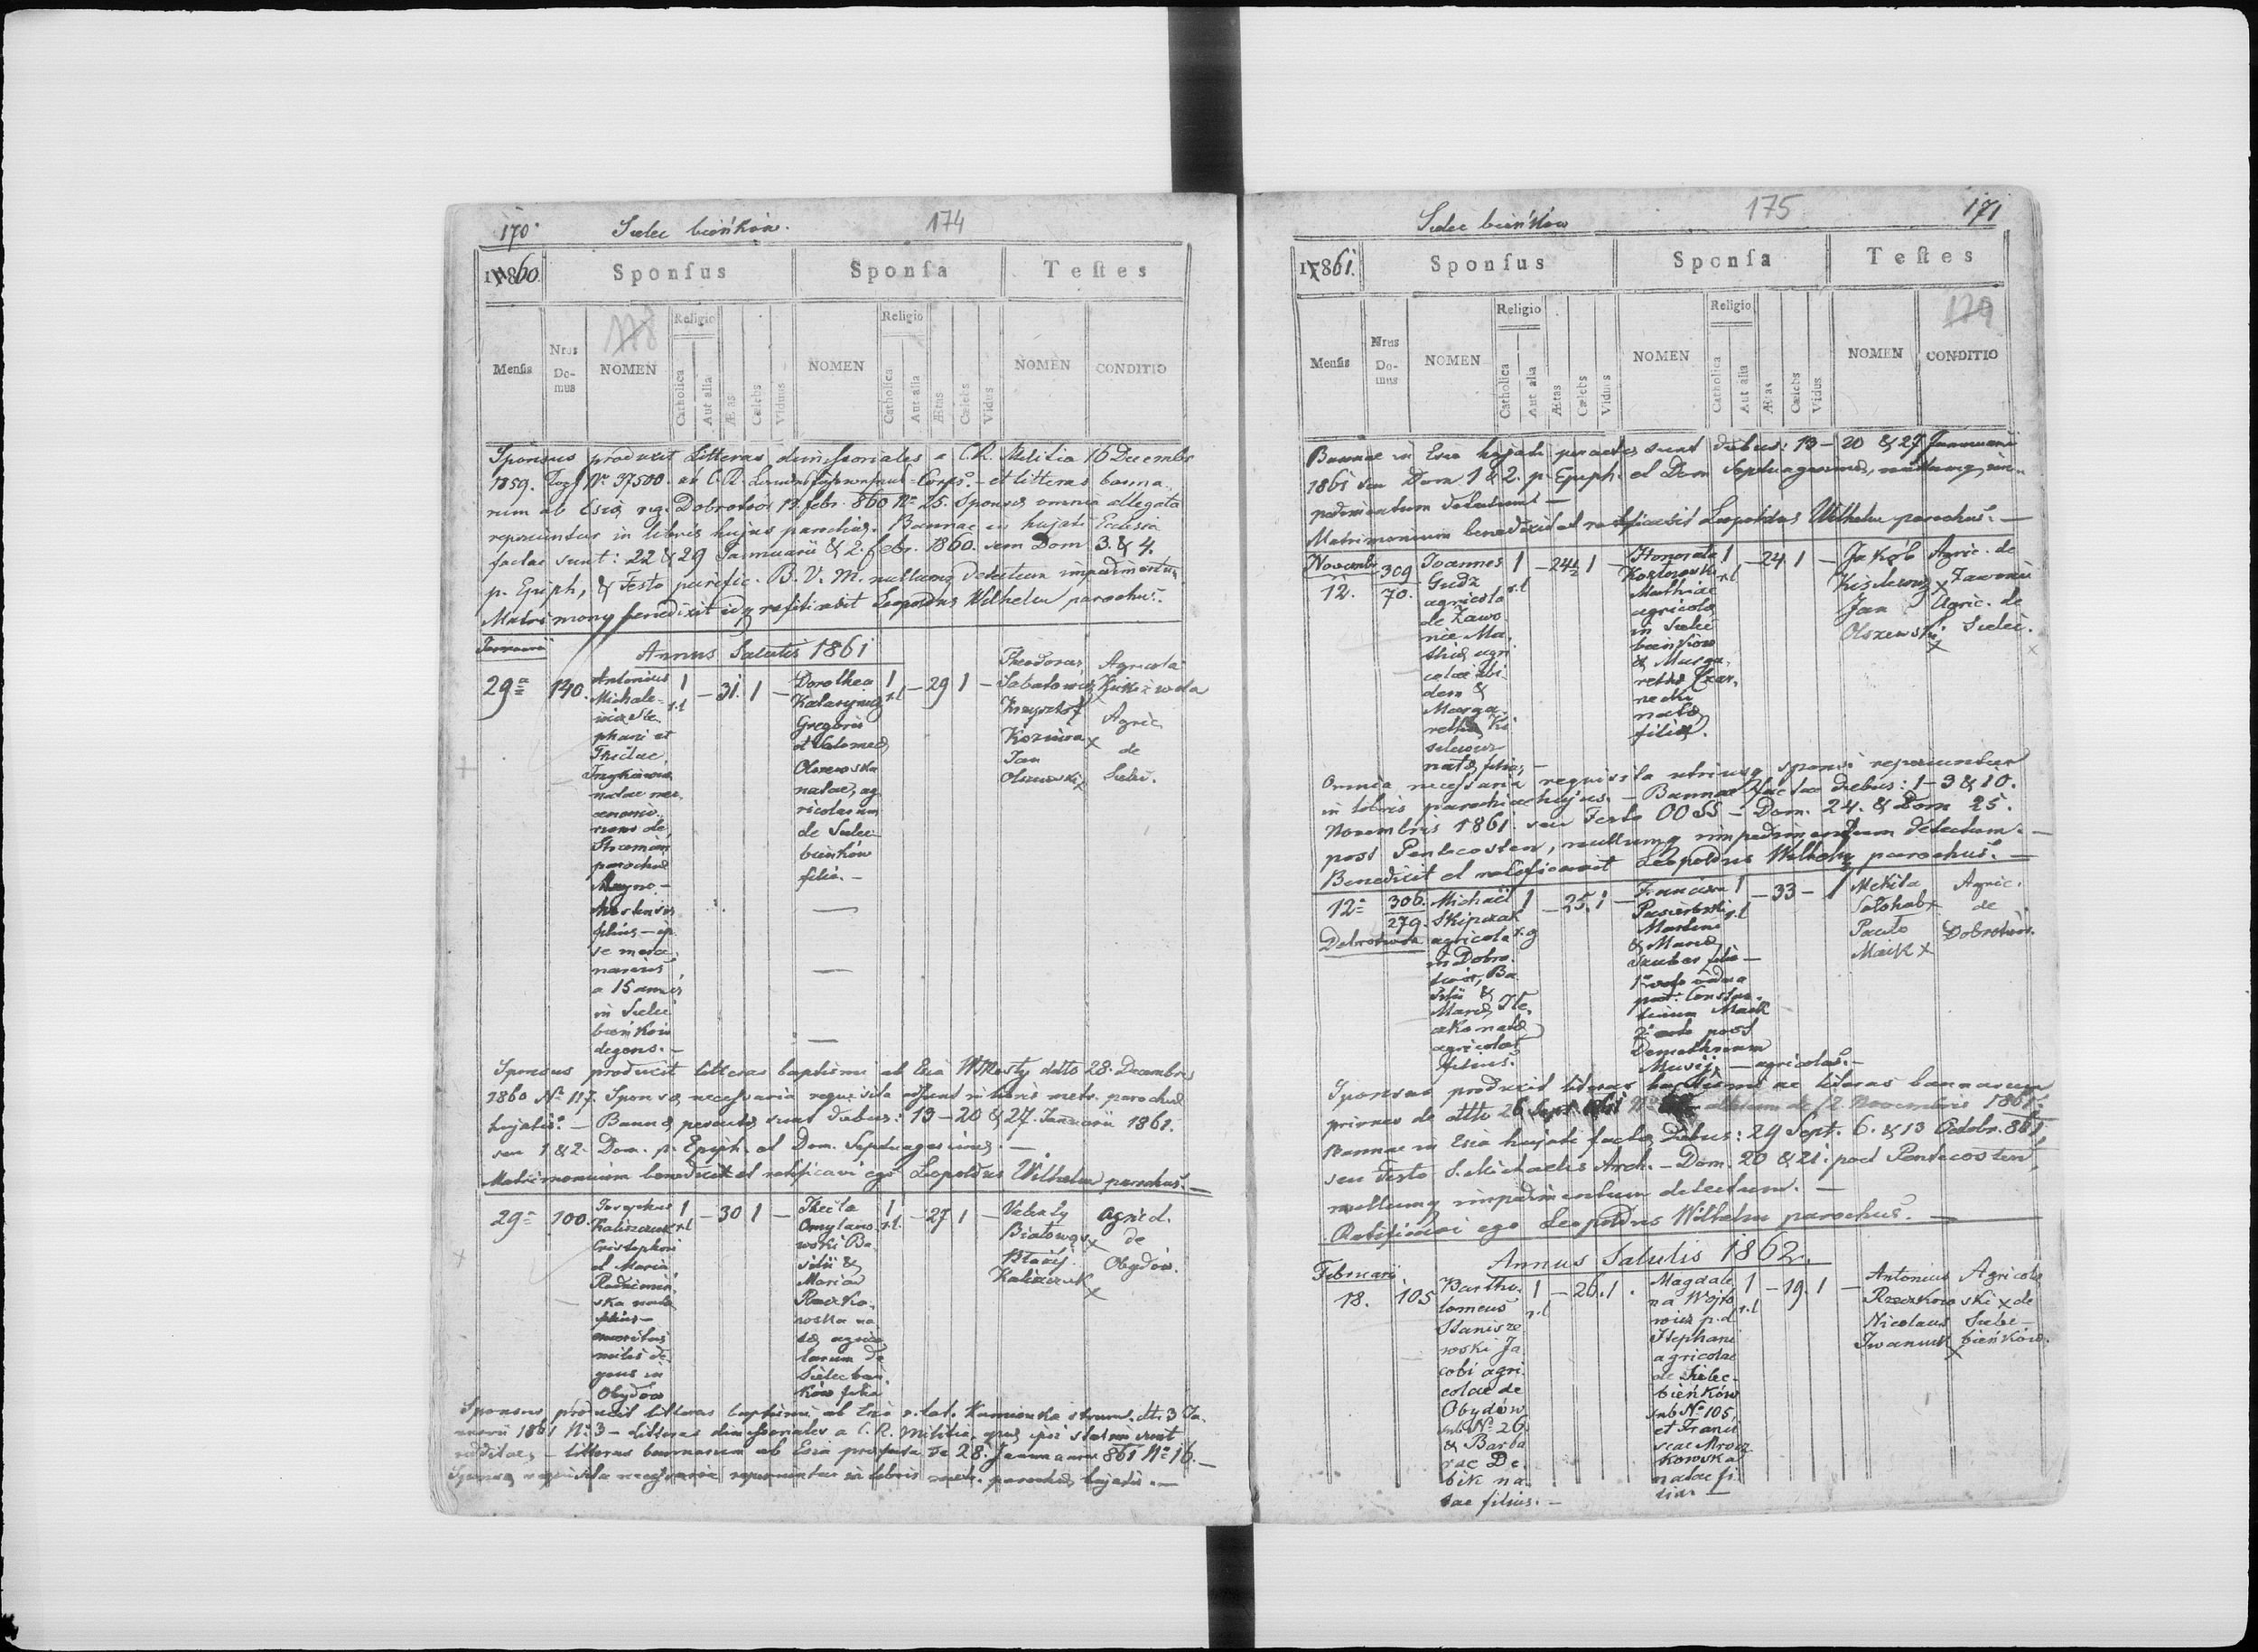 170
Sielec bieńków.
174
1860.
Sponsus
Sponsa
Testes
Mensis
Nrus Domus
118
NOMEN
Religio
Catholica
Aut alia
Ætas
Cælebs
Viduus
NOMEN
Religio
Catholica
Aut alia
Ætas
Cælebs
Vidus
NOMEN
CONDITIO
Sponsus produxit Litteras dimissoriales a C.R. Militia 16 Decembr
1859. Nº 37500 ab C.R. Corps. - et litteras banna
rum ab Esia r.g. Dobrotwor 13. febr. 860 Nº 25. Sponsa omnia allegata
reperiuntur in libris hujus parochiae. Bannae in hujate Ecclesia
factae sunt: 22 & 29 Januarii & 2. febr. 1860. seu Dom 3. & 4.
p. Epiph, & Festo purific. B. V. M. nullumq detectum impedimentum
Matrimony benedixit idq ratificavit Leopoldus Wilhelm parochus.
Januarii
Annus Salutis 1861
29a
140.
Antonius
Michale-
wicz Ste
phani et
Theclae
natae mer
cenario
rum de
parochiae
Magno -
Mostensis
filius - ip
se merce
narius
a 15 annis
in Sielec
bieńków
degens. -
1
r.l
- 31. 1 -
Dorothea
Gregorii
et Salomeae
Olszewska
natae, ag
ricolarum
de Sielec
bieńków
filia. -
1
r.l
- 29 1 -
Theodorus
Sabatowicz
Krzysztof
Kozniva x
Jan
Olszewski x
Agricola
Agric.
de
Sielec.
Sponsus producit litteras baptismi ab Esia M.Mosty ddto 28. Decembris
1860 Nº 117. Sponsa necessaria requisita adsunt in libris metr. parochiae
hujatis. - Bannae peractae sunt diebus: 13 - 20 & 27. Januarii 1861.
seu 1 & 2. Dom. p. Epiph. et Dom. Septuagesimae. -
Matrimonium benedixi et ratificavi ego Leopoldus Wilhelm parochus. -
29a
100.
Kaliszczuk
Cristophori
et Maria
ska nata
filius -
emeritus
miles de
gens in
Obydów
1
r.l
- 30 1 -
Thecla
Omylano
wski Ba
silii &
Maria
Raczko
woska na
tae agrico
larum de
Sielec bień
ków filia
1
r.l.
- 27 1 -
Walenty
Białowąs x
Błażej
Kaliszczuk
x
Agricol.
de
Obydów.
Sponsus producit litteras baptismi ab Esia r. lat. Kamionka strum. dto 3 Ja
nuarii 1861 Nº 3 - litteras dimissoriales a C. R. Militia, quae ipsi statim sunt
redditae, - litteras bannarum ab Esia de 28. Januari 861 Nº 16. -
Sponsa requisita necessaria reperiuntur in libris metr. parochiae hujatis. -
Sielec bieńków
175
171
1861.
Sponsus
Sponsa
Testes
Mensis
Nrus Domus
NOMEN
Religio
Catholica
Aut alia
Ætas
Cælebs
Viduus
NOMEN
Religio
Catholica
Aut alia
Ætas
Cælebs
Vidus
NOMEN
179
CONDITIO
Bannae in Esia hujati peractae sunt diebus: 13 - 20 & 27 Januarii
1861 seu Dom 1 & 2. p. Epiph. et Dom Septuagesimae, nullumq im
pedimentum detectum -
Matrimonium benedixit et ratificavit Leopoldus Wilhelm parochus. -
Novembr
12.
309
70.
Ioannes
Gudz
agricola
de Zawo
nie Ma
thiae agri
colae ibi
dem &
Marga
retha Ki
selewicz
natae filius, -
1
r.l
- 24½ 1 -
Honorata
Kozłowski
Mathiae
agricola
in Sielec
bieńków
& Marga
retha Czar
necki
natae
filia.
1
r.l
- 24 1 -
Jakób
x
Jan
Olszewski
x
Agric. de
Zawonie
Agric. de
Sielec.
Omnia necessaria requisita utriusq sponsi reperiuntur
in libris parochiae hujus. - Bannae factae diebus: 1 - 3 & 10.
Novembris 1861. seu Festo OOSS - Dom. 24. & Dom 25.
post Pentecosten, nullumq impedimentum detectum. -
Benedixit et ratificavit Leopoldus Wilhelm parochus. -
12a
Dobrotwor
306.
279.
Michaël
Skipczak
agricola
in Dobro
twór, Ba
silii &
Maria
natae
agricolae
filius.
1
r.g
- 25. 1 -
Francisca
Pasierbski
Martini
& Maria
filia -
1º voto vidua
post Constan
tinum Maik
2º voto post
Demethrium
Musij - agricolas. -
1
r.l
- 33 - 1
Mekita
Sołohub x
Pawło
Maik x
Agric.
de
Dobrotwór.
Sponsus producit literas baptismi ac literas bannarum
priores de dtto 26 Sept. 861 Nº alterum de 12. Novembris 1861.
Bannae in Esia hujati factae diebus: 29 Sept. 6. & 13 Octobr. 861
seu Festo S. Michaelis Arch. - Dom. 20 & 21. post Pentecosten,
nullumq impedimentum detectum. -
Ratificavi ego Leopoldus Wilhelm parochus. -
Annus Salutis 1862.
Februarii
18.
105
Bartho
lomeus
Stanisze
wski Ja
cobi agri
colae de
Obydów
sub Nº 26
& Barba
rae De
bik na
tae filius. -
1
r.l
- 26. 1 .
Magdale
na Wojto
wicz p.d
Stephani
agricolae
de Sielec
bieńków
sub Nº 105,
et Franci
scae Mrocz
kowska
natae fi
lia -
1
r.l
- 19. 1 -
Antonius
Raczkowski x
Nicolaus
Iwaniuk x
Agricola
de
Sielec
bieńków.